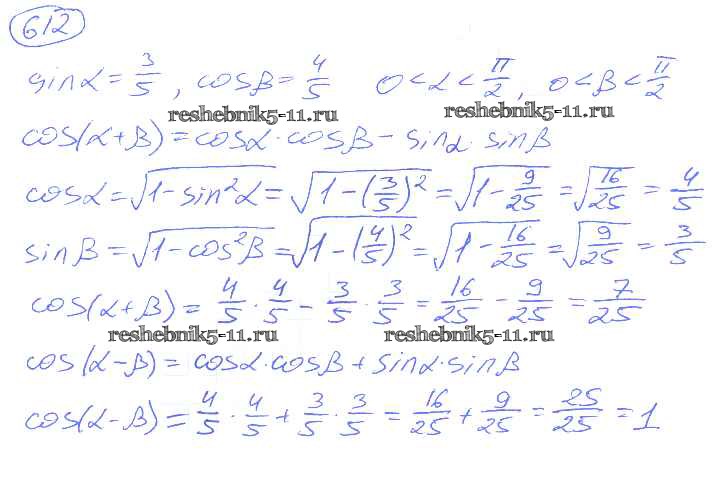 612
sinα = 3/5, cosβ = 4/5   0 < α < π/2, 0 < β < π/2
reshebnik5-11.ru reshebnik5-11.ru
cos(α+β) = cosα·cosβ - sinα·sinβ
cosα = √(1-sin²α) = √(1-(3/5)²) = √(1-9/25) = √(16/25) = 4/5
sinβ = √(1-cos²β) = √(1-(4/5)²) = √(1-16/25) = √(9/25) = 3/5
cos(α+β) = 4/5 · 4/5 - 3/5 · 3/5 = 16/25 - 9/25 = 7/25
reshebnik5-11.ru reshebnik5-11.ru
cos(α-β) = cosα·cosβ + sinα·sinβ
cos(α-β) = 4/5 · 4/5 + 3/5 · 3/5 = 16/25 + 9/25 = 25/25 = 1